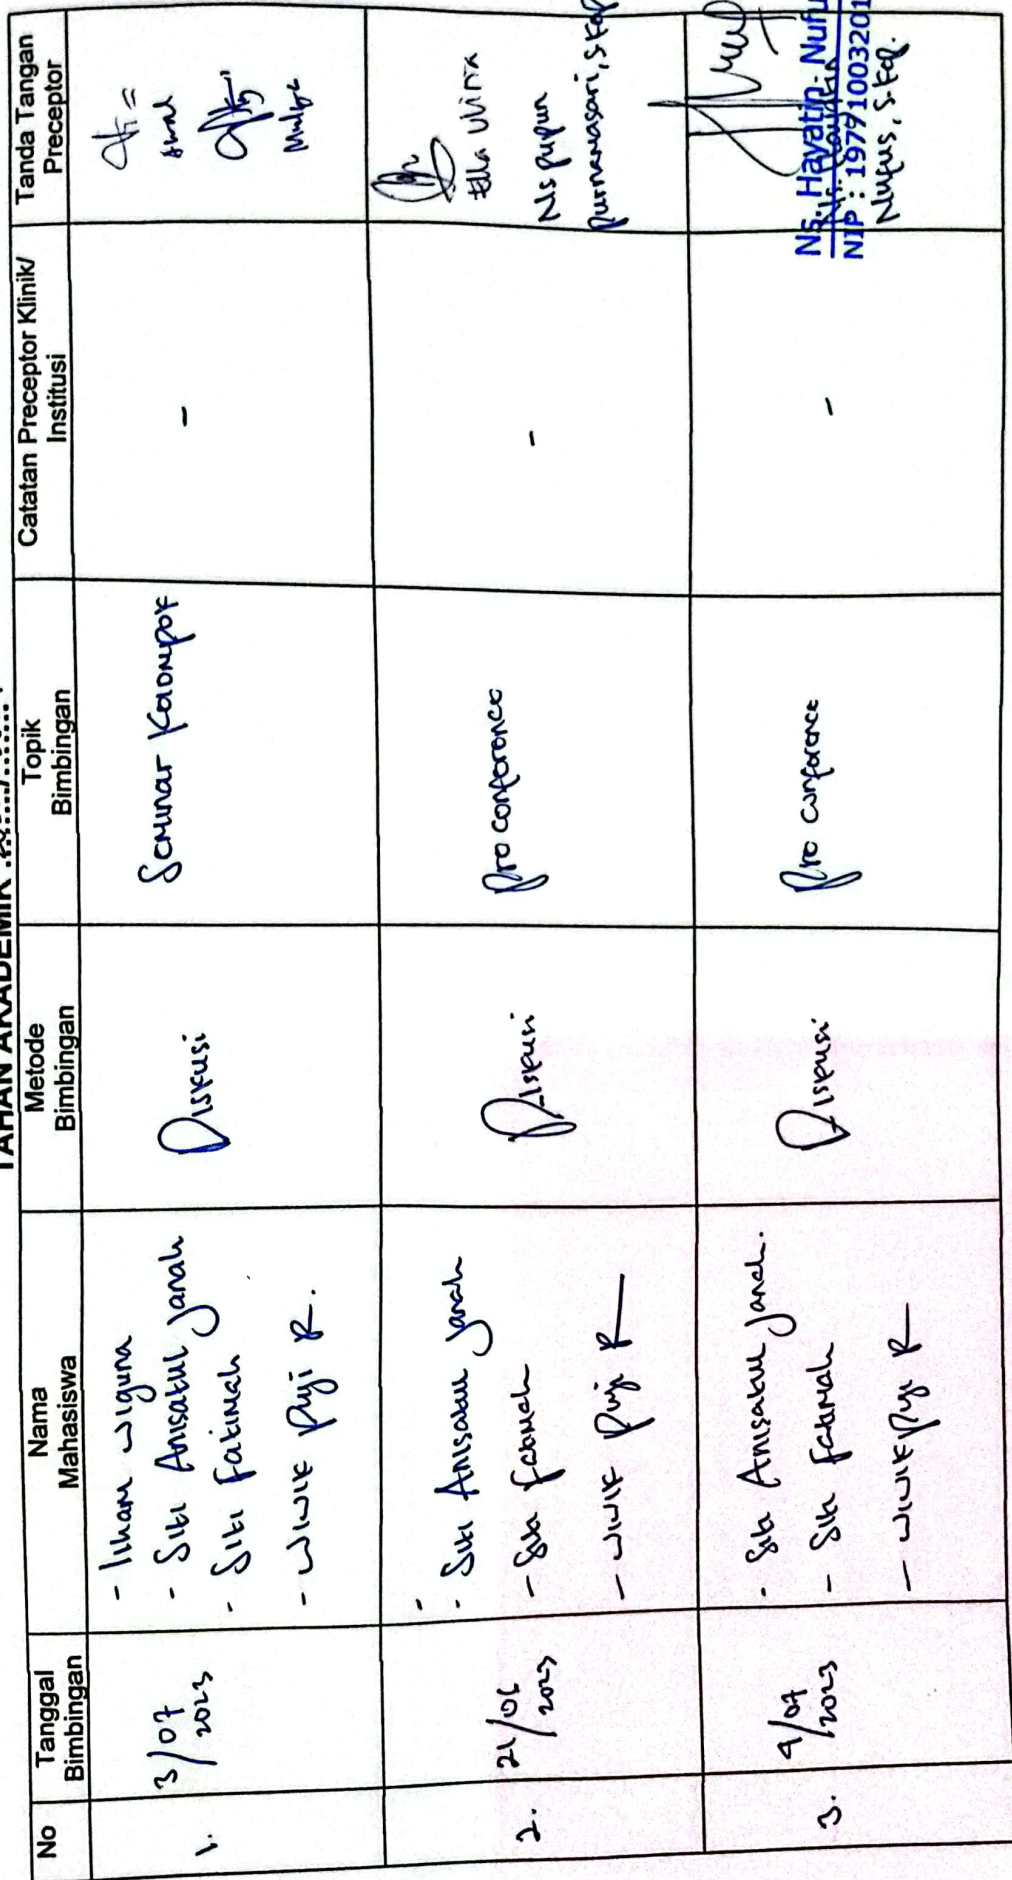 TAHAN AKADEMIK
No
Tanggal
Bimbingan
Nama
Mahasiswa
Metode
Bimbingan
Topik
Bimbingan
Catatan Preceptor Klinik/
Institusi
Tanda Tangan
Preceptor
1.
3/07
2023
- Ilham Wiguna
- Siti Anisatul Janah
- Siti Fatimah
- Wiwik Puji R.
Diskusi
Seminar Kelompok
-
2.
21/06
2023
- Siti Anisatul Janah
- Siti Fatimah
- Wiwik Puji R
Diskusi
Pre conference
-
Ella Ulvira
Ns pupun
purnamasari, S.Kep
3.
4/07
2023
- Siti Anisatul Janah.
- Siti Fatimah
- Wiwik Puji R
Diskusi
Pre conference
-
Ns. Hayatin Nufu
NIP : 19791003201
Nufus, S.Kep.